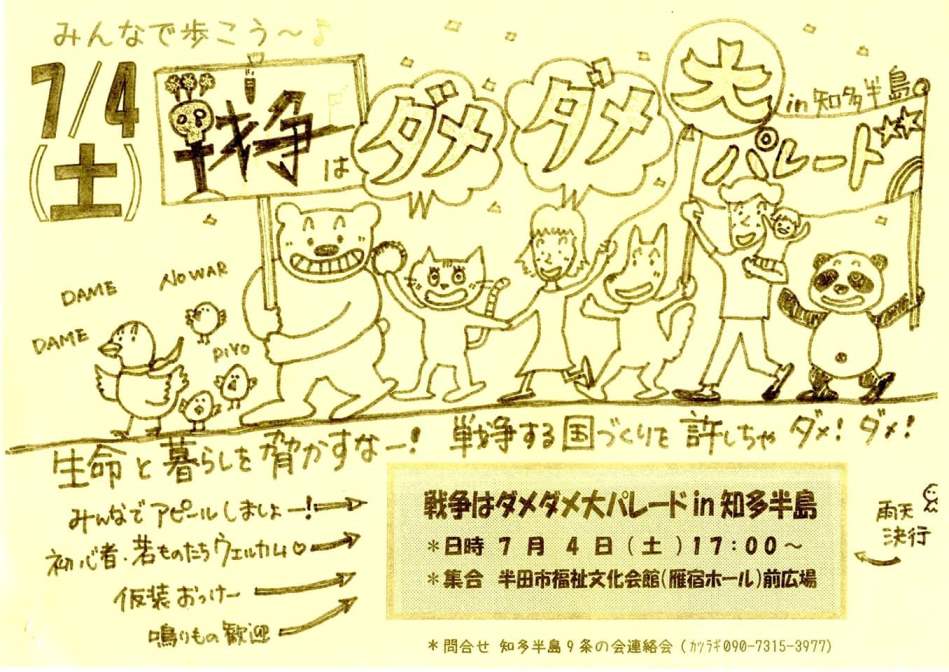 みんなで歩こう～♪
7/4
(土)
戦争は
ダメ
ダメ
大
in 知多半島
パレード
DAME
NO WAR
DAME
PIYO
生命と暮らしを脅かすなー! 戦争する国づくりを許しちゃダメ!ダメ!
みんなでアピールしましょー!
初心者・若ものたちウェルカム♡
仮装おっけー
鳴りもの歓迎
戦争はダメダメ大パレード in 知多半島
＊日時 7月 4日(土)17:00～
＊集合 半田市福祉文化会館(雁宿ホール)前広場
雨天
決行
＊問合せ 知多半島９条の会連絡会（ｶﾂﾗｷﾞ090-7315-3977）